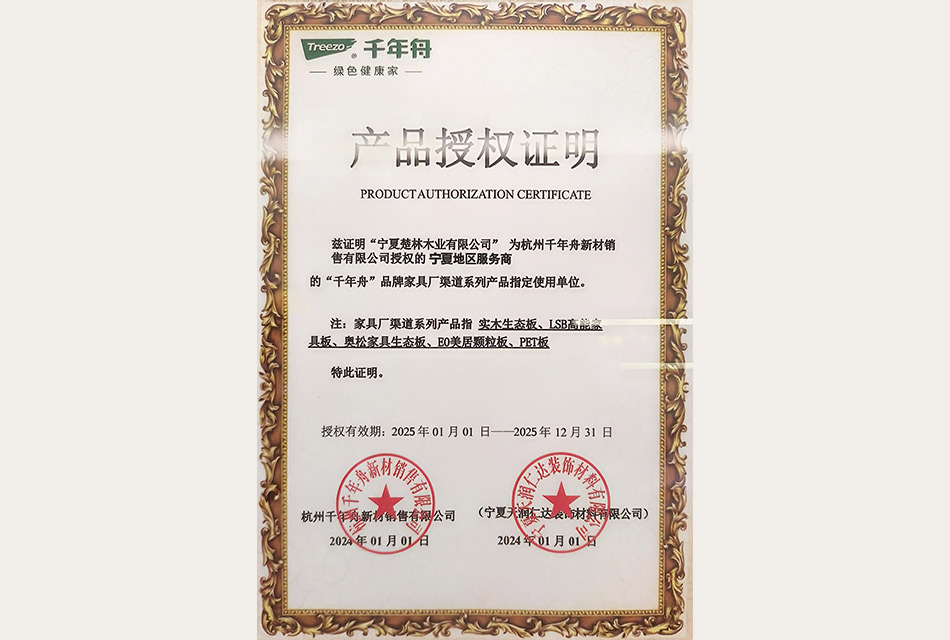 Treezo® 千年舟
绿色健康家
产品授权证明
PRODUCT AUTHORIZATION CERTIFICATE
兹证明“宁夏楚林木业有限公司” 为杭州千年舟新材销
售有限公司授权的 宁夏地区服务商
的“千年舟”品牌家具厂渠道系列产品指定使用单位。
注：家具厂渠道系列产品指 实木生态板、LSB高能家
具板、奥松家具生态板、E0美居颗粒板、PET板
特此证明。
授权有效期：2025 年 01 月 01 日——2025 年 12 月 31 日
杭州千年舟新材销售有限公司
2024 年 01 月 01 日
（宁夏天润仁达装饰材料有限公司）
2024 年 01 月 01 日
杭州千年舟新材销售有限公司
宁夏天润仁达装饰材料有限公司